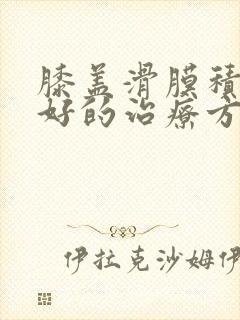 膝盖滑膜积
好的治疗方
伊拉克沙姆伊